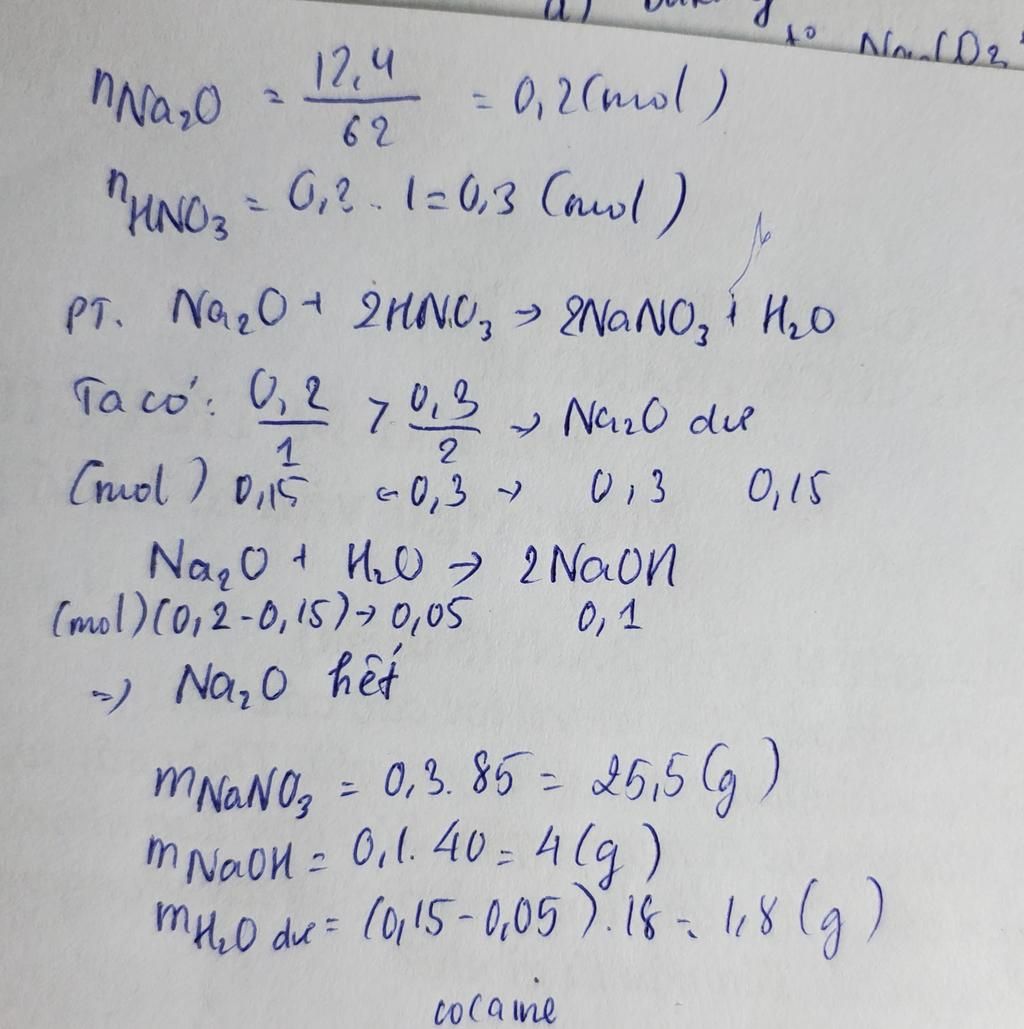 a)
t° Na₂CO₃
nNa₂O = 12,4/62 = 0,2 (mol)
nHNO₃ = 0,3 . 1 = 0,3 (mol)
PT. Na₂O + 2HNO₃ → 2NaNO₃ + H₂O
Ta có: 0,2/1 > 0,3/2 → Na₂O dư
(mol) 0,15 ← 0,3 → 0,3 0,15
Na₂O + H₂O → 2NaOH
(mol) (0,2 - 0,15) → 0,05 0,1
=> Na₂O hết
mNaNO₃ = 0,3 . 85 = 25,5 (g)
mNaOH = 0,1 . 40 = 4 (g)
mH₂O dư = (0,15 - 0,05) . 18 = 1,8 (g)
cocaine